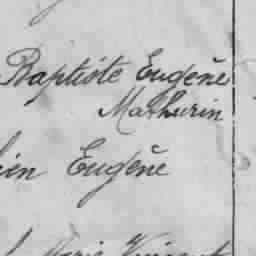 Baptiste Eugène
Mathurin
ien Eugène